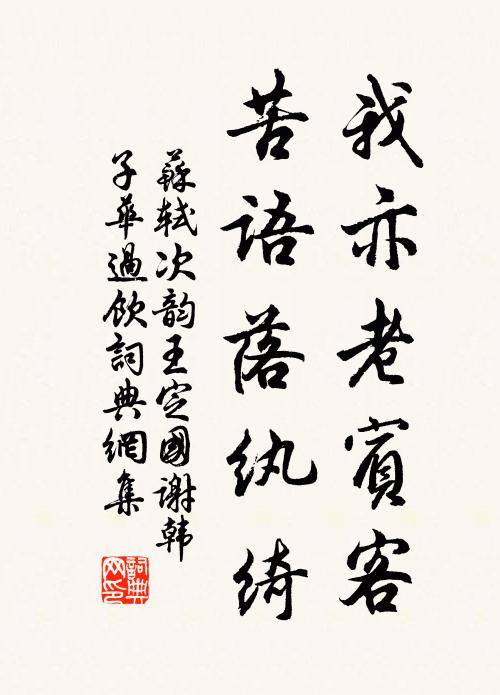 我亦老賓客
苦語落紈綺
蘇軾次韵王定國谢韩
子華過飲詞典網集
詞典网印